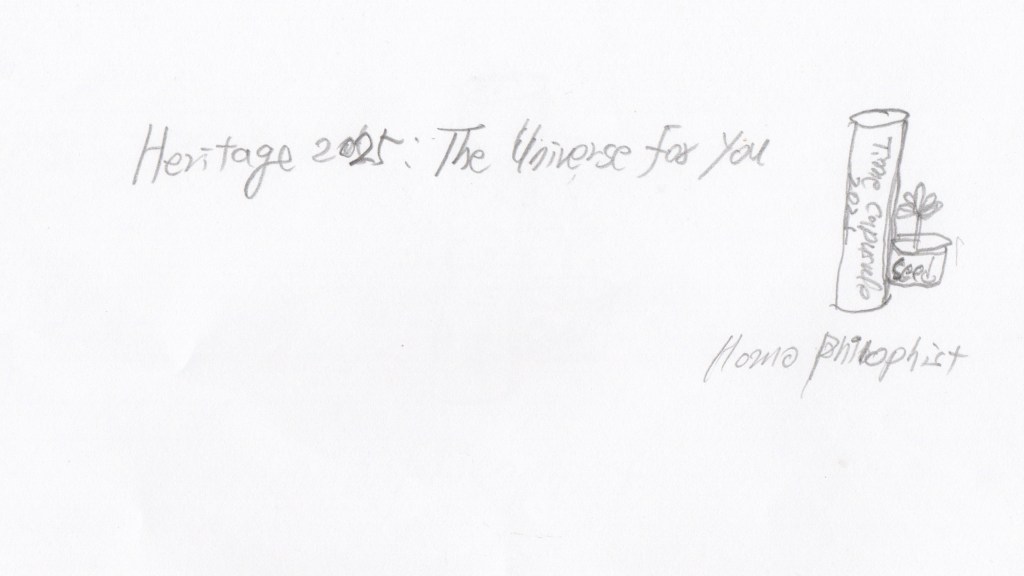 Heritage 2025: The Universe for You
Time
2021
seed
Homo philophist